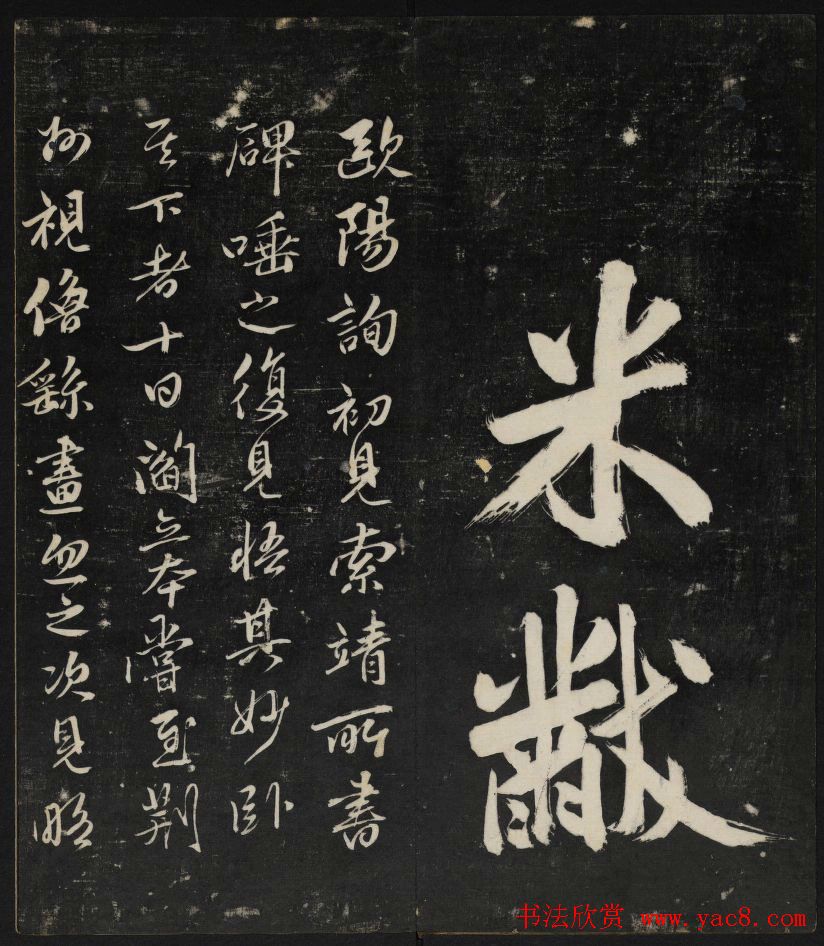 米黻
歐陽詢初見索靖所書
碑唾之復見悟其妙卧
其下者十日閻立本嘗至荆
州視僧繇畫忽之次見略
书法欣赏 www.yac8.com